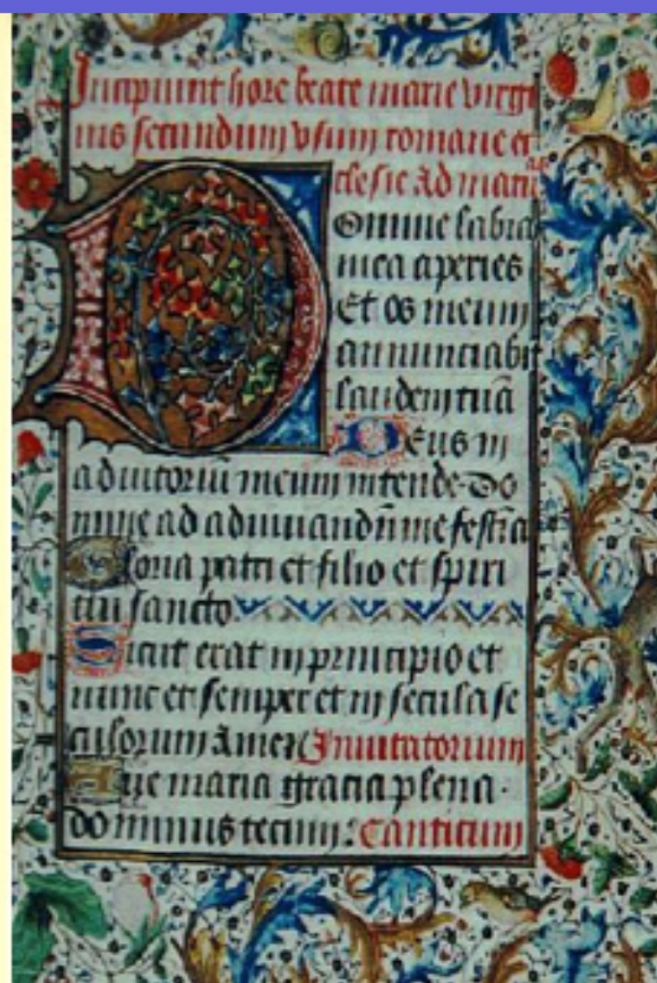 Incipiunt hore beate marie virgi
nis secundum vsum romane ec
clesie Ad matu
Omine labia
mea aperies
Et os meum
annunciabit
laudem tuā
Deus in
adiutoriū meum intende Do
mine ad adiuuandū me festīa
Gloria patri et filio et spiri
tui sancto
Sicut erat in principio et
nunc et semper et in secula se
culorum Amen Inuitatorium
Aue maria gracia plena.
dominus tecum: Canticum